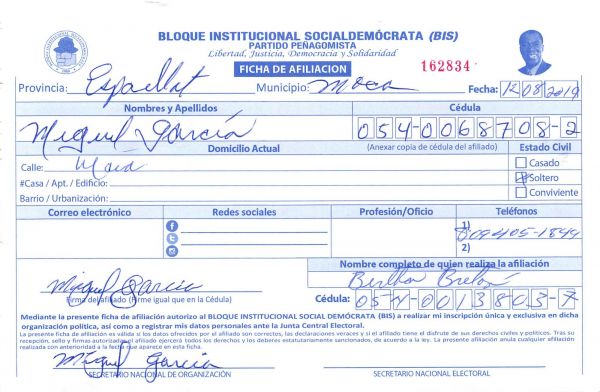 BLOQUE INSTITUCIONAL SOCIALDEMÓCRATA (BIS)
PARTIDO PEÑAGOMISTA
Libertad, Justicia, Democracia y Solidaridad
FICHA DE AFILIACION
162834
Provincia: Espaillat Municipio: Moca Fecha: 12/08/2019
Nombres y Apellidos Cédula
Miguel García 054-0068708-2
Domicilio Actual (Anexar copia de cédula del afiliado) Estado Civil
Calle: Moca Casado
#Casa / Apt. / Edificio: Soltero
Barrio / Urbanización: Conviviente
Correo electrónico Redes sociales Profesión/Oficio Teléfonos
1) 809 405-1849
2)
Nombre completo de quien realiza la afiliación
Miguel García Bertha
Firma del afiliado (Firme igual que en la Cédula) Cédula: 054-0013803-7
Mediante la presente ficha de afiliación autorizo al BLOQUE INSTITUCIONAL SOCIAL DEMÓCRATA (BIS) a realizar mi inscripción única y exclusiva en dicha
organización política, así como a registrar mis datos personales ante la Junta Central Electoral.
La presente ficha de afiliación es válida si los datos ofrecidos por el afiliado son correctos, las declaraciones veraces y si el afiliado tiene el disfrute de sus derechos civiles y políticos. Tras su
recepción, sello y firmas autorizadas el afiliado ejercerá todos los derechos y los deberes estatutariamente sancionados, de acuerdo a la ley. La presente afiliación anula cualquier afiliación
realizada con anterioridad a la fecha que aparece en esta ficha.
Miguel García
SECRETARIO NACIONAL DE ORGANIZACIÓN SECRETARIO NACIONAL ELECTORAL